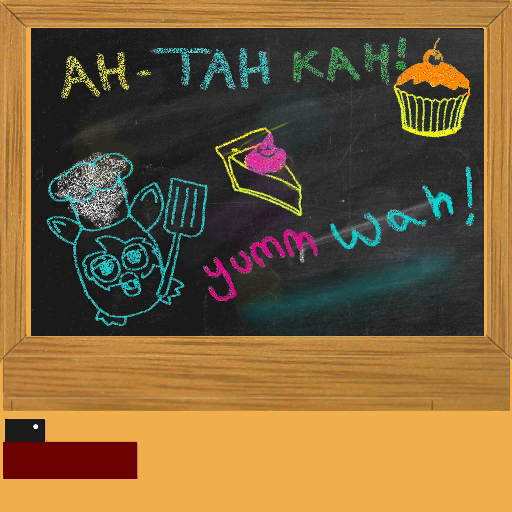 AH-TAH KAH!
yumm wah!